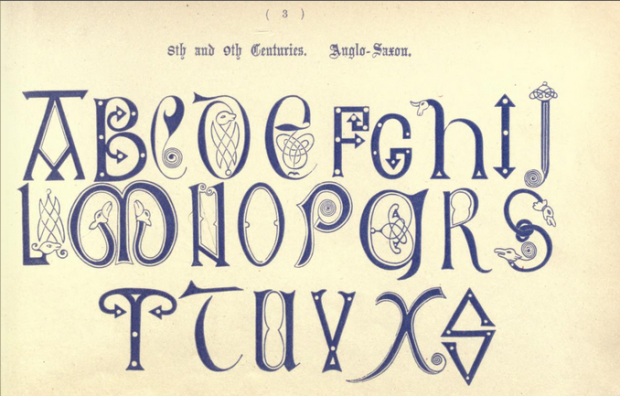 ( 3 )
8th and 9th Centuries. Anglo-Saxon.
A B C D E F G h I J
L M N O P Q R S
T T U V X S